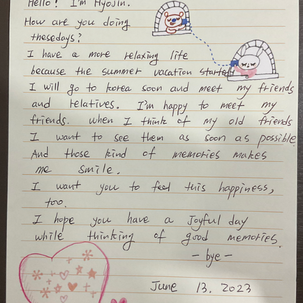 Hello! I'm HyoJin.
How are you doing
thesedays?
I have a more relaxing life
because the summer vacation started
I will go to korea soon and meet my friends
and relatives. I'm happy to meet my
friends. when I think of my old friends
I want to see them as soon as possible
And those kind of memories makes
me smile.
I want you to feel this happiness,
too.
I hope you have a Joyful day
while thinking of good memories.
- bye -
June 13. 2023